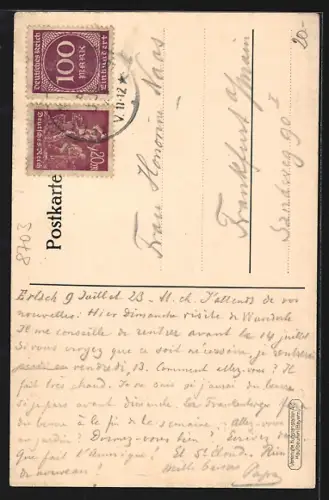 20.-
Deutsches Reich
100
MARK
Einhundert
V. 11-12
20M
Deutsches Reich
Postkarte
Frau Honorine Naas
Frankfurt a/Main
Sandweg 90 I
8703
9 Juillet 23 - M. ch. J'attends de vos
nouvelles: Hier dimanche visite de
Il me conseille de rentrer avant le 14 juillet
Si vous voyez que ce soit nécessaire, je rentrerai
vendredi, 13. Comment allez-vous? Il
fait très chaud. Je ne sais si j'aurai du beurre
si je pars avant dimanche.
du beurre à la fin de la semaine. Allez-vous
au jardin? Donnez-vous bien!
Que fait l'Amérique! Et St Cloud? Rien
de nouveau! Mille baisers
Papa